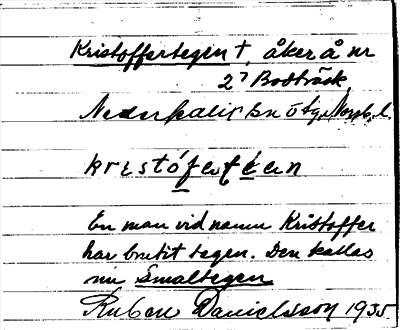 Kristoffertegen †, åker å nr
27 Bodträsk
Nederkalix sn Norrb. l.
kristófertéen
En man vid namn Kristoffer
har brutit tegen. Den kallas
nu Smaltegen
Ruben Danielsson 1935